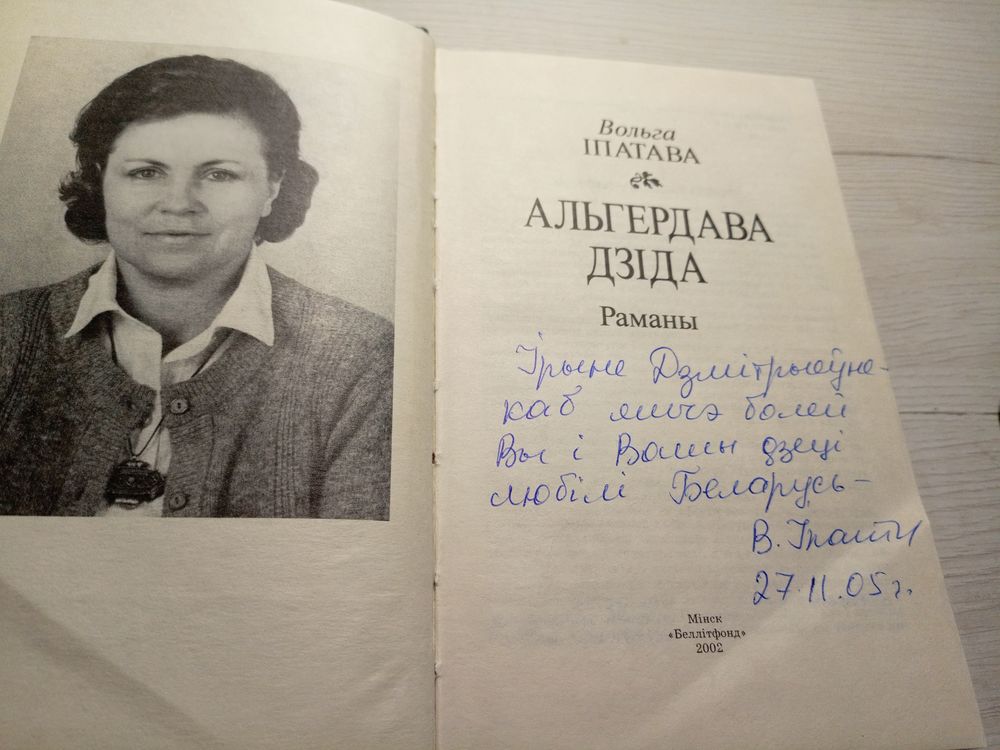 Вольга
ІПАТАВА
АЛЬГЕРДАВА
ДЗІДА
Раманы
Ірыне Дзмітрыеўне-
каб яшчэ болей
Вы і Вашы дзеці
любілі Беларусь-
В. Іпат
27.11.05 г.
Мінск
«Беллітфонд»
2002